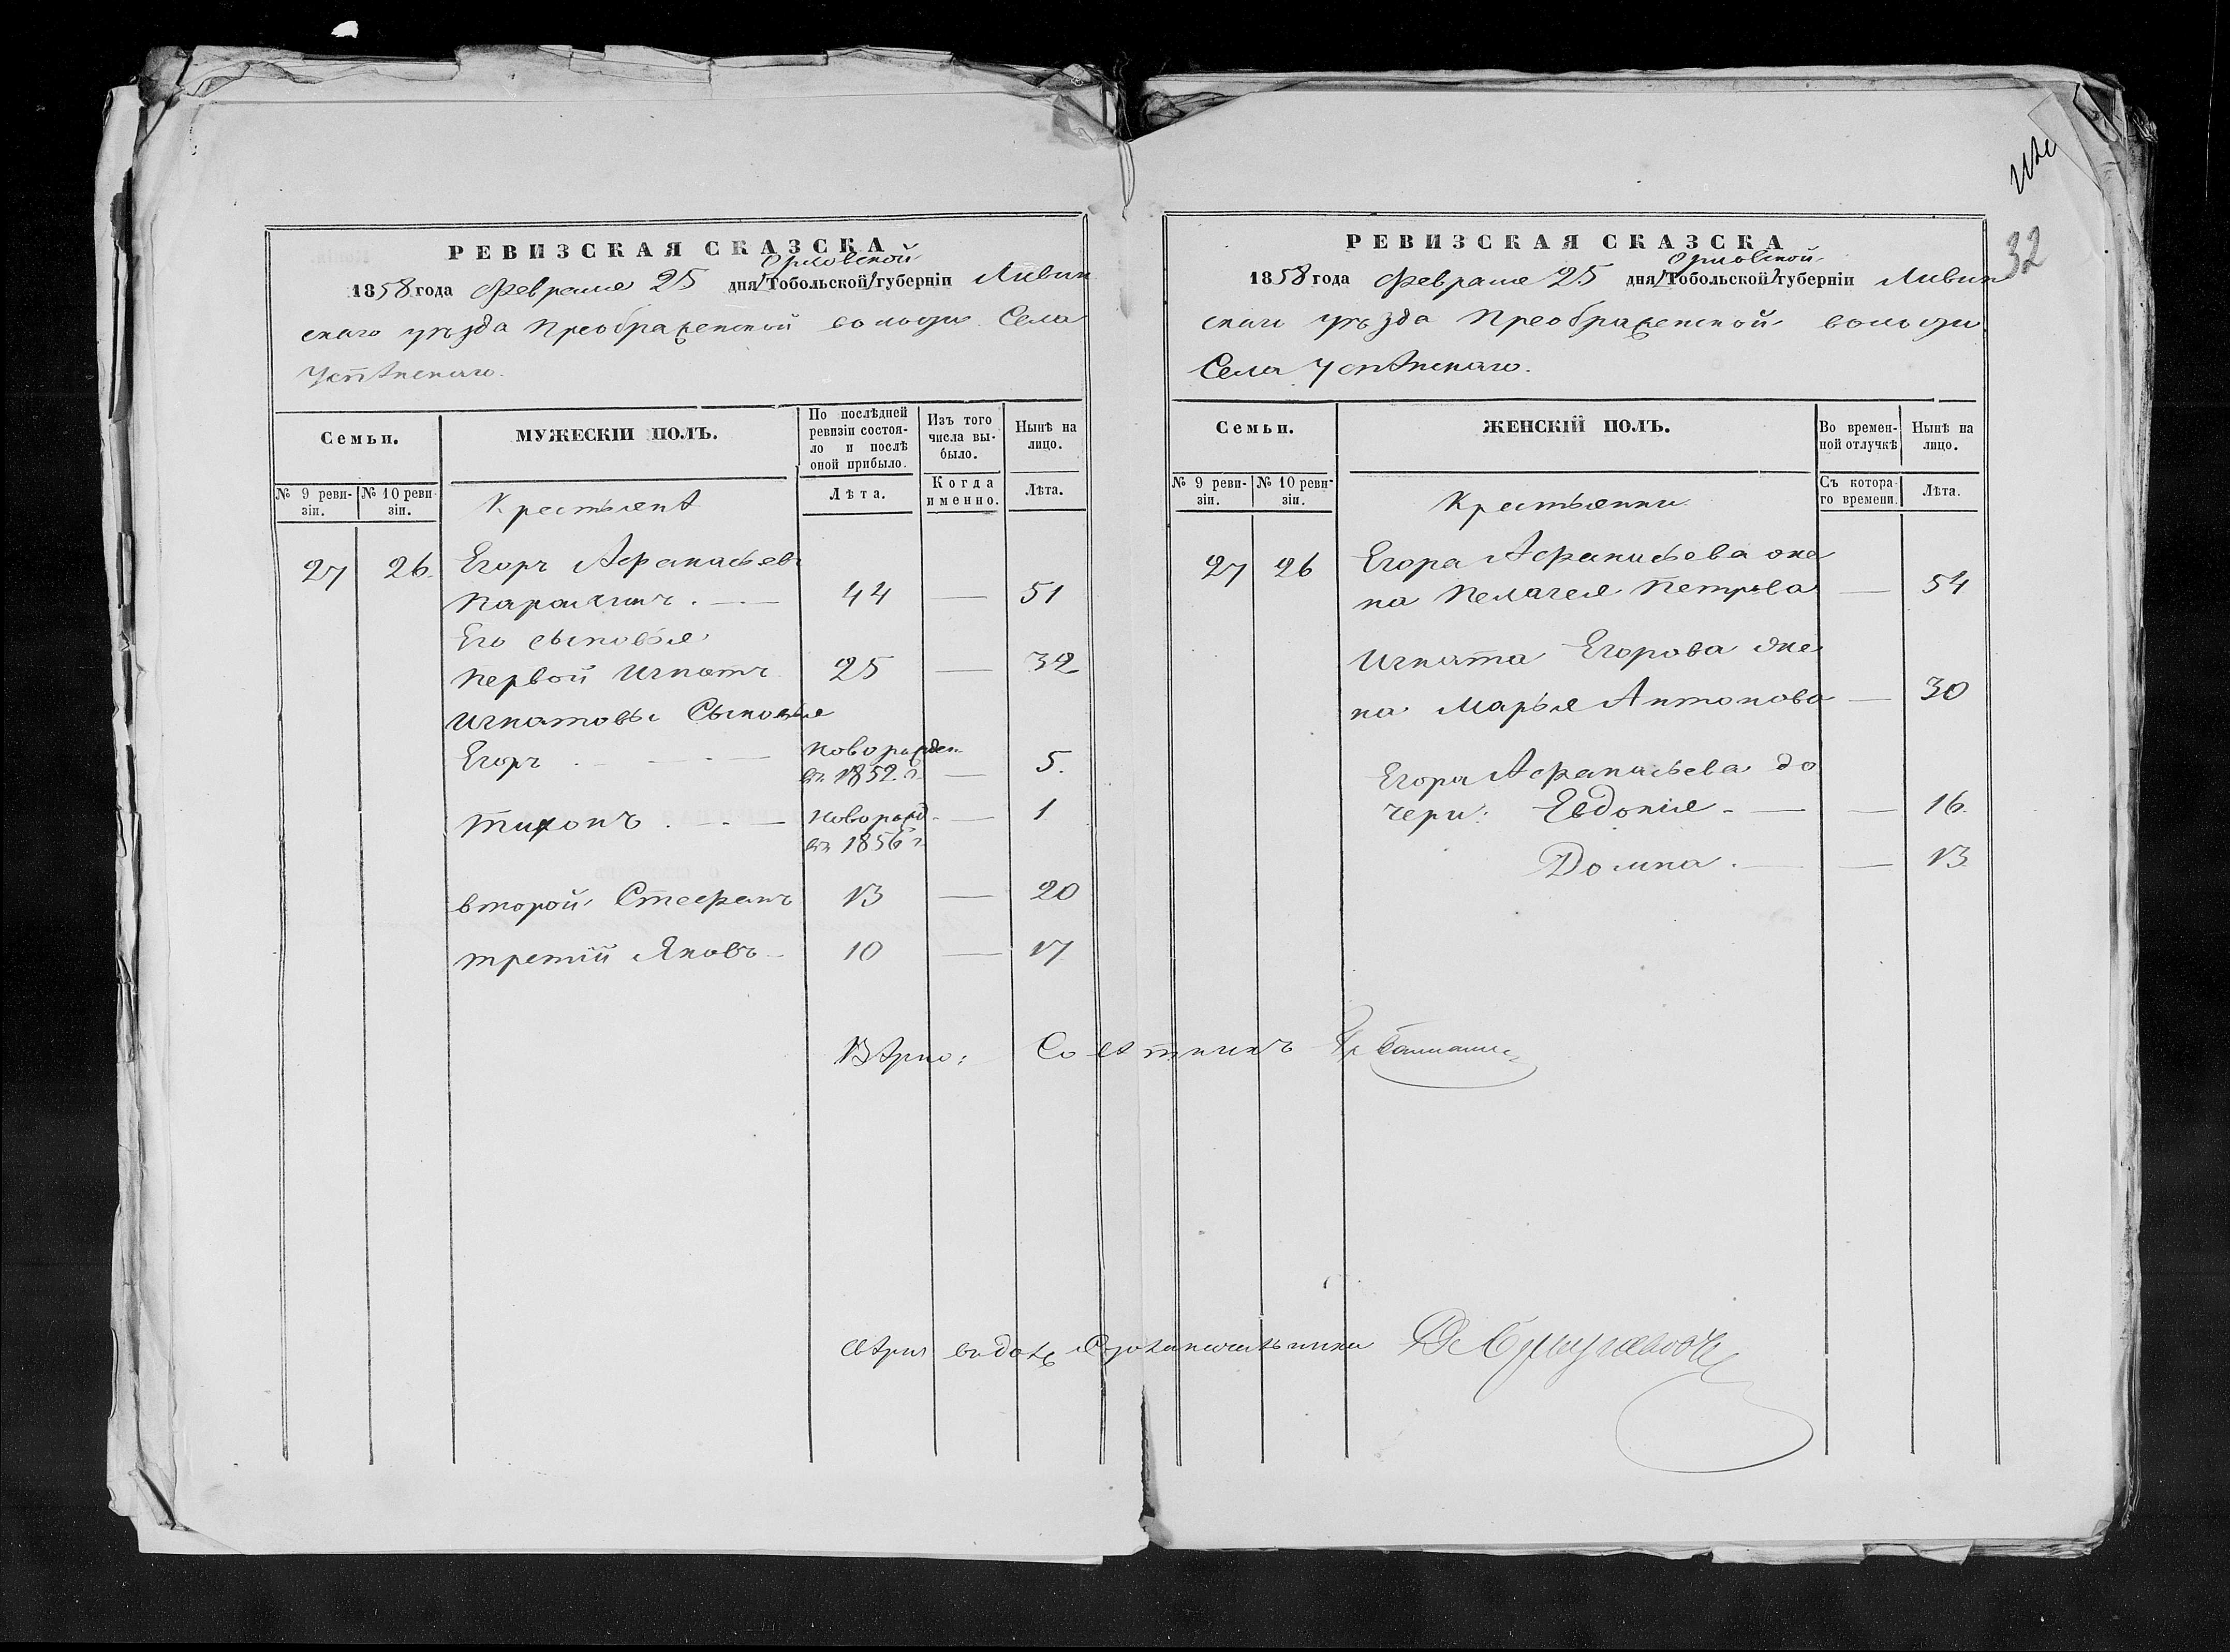 32
РЕВИЗСКАЯ СКАЗСКА
Орловской
1858 года Февраля 25 дня Тобольской губерніи Ливин
скаго уѣзда Преображенской волости Села
Успѣнскаго.
Семьи.
МУЖЕСКІЙ ПОЛЪ.
По послѣдней
ревизіи состоя-
ло и послѣ
оной прибыло.
Изъ того
числа вы-
было.
Нынѣ на
лицо.
№ 9 реви-
зіи.
№ 10 реви-
зіи.
Крестьянѣ
Лѣта.
Когда
именно.
Лѣта.
27 26. Егоръ Афанасьевъ
44 — 51
Его сыновья
Первой Игнатъ 25 — 32
Игнатовы Сыновья
Егоръ . — . — Новорожден — 5.
въ 1852. г.
Тихонъ . — . — Новорожд. — 1
въ 1856 г.
второй Стефанъ 13 — 20
третій Яковъ — 10 — 17
Вѣрно:
РЕВИЗСКАЯ СКАЗСКА
Орловской
1858 года Февраля 25 дня Тобольской губерніи Ливин
скаго уѣзда Преображенской волости
Села Успѣнскаго.
Семьи.
ЖЕНСКІЙ ПОЛЪ.
Во времен-
ной отлучкѣ
Нынѣ на
лицо.
№ 9 реви-
зіи.
№ 10 реви-
зіи.
Крестьянки
Съ котора-
го времени.
Лѣта.
27 26 Егора Афанасьева же
на Пелагея Петрова — 54
Игната Егорова же
на Марья Антонова — 30
Егора Афанасьева до
чери: Евдокия — — 16.
Домна . — — 13